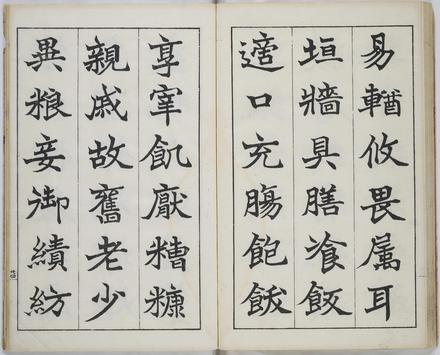 易輶攸畏属耳
垣牆具膳飡飯
適口充膓飽飫
享宰飢厭糟糠
親戚故舊老少
異粮妾御績紡